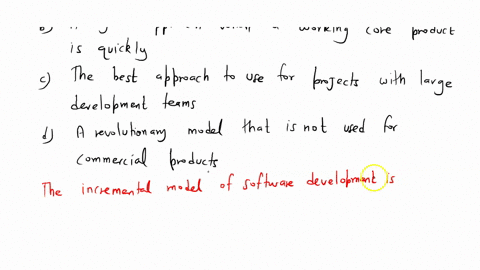 a working core product
is quickly
c) The best approach to use for projects with large
development teams
d) A revolutionary model that is not used for
commercial products
The incremental model of software development is